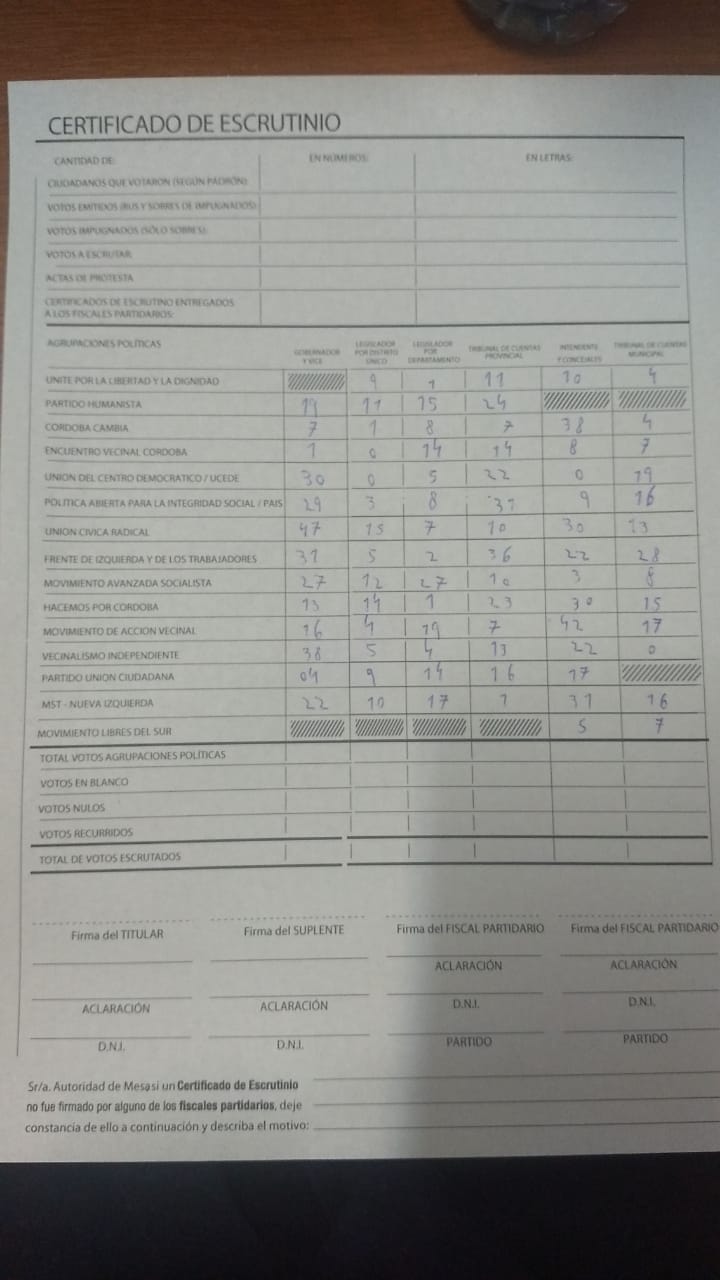 CERTIFICADO DE ESCRUTINIO
CANTIDAD DE: EN NÚMEROS: EN LETRAS:
CIUDADANOS QUE VOTARON (SEGÚN PADRÓN):
VOTOS EMITIDOS (BUS Y SOBRES DE IMPUGNADOS):
VOTOS IMPUGNADOS (SÓLO SOBRES):
VOTOS A ESCRUTAR:
ACTAS DE PROTESTA
CERTIFICADOS DE ESCRUTINO ENTREGADOS
A LOS FISCALES PARTIDARIOS:
AGRUPACIONES POLÍTICAS GOBERNADOR Y VICE LEGISLADOR POR DISTRITO ÚNICO LEGISLADOR POR DEPARTAMENTO TRIBUNAL DE CUENTAS PROVINCIAL INTENDENTE Y CONCEJALES TRIBUNAL DE CUENTAS MUNICIPAL
UNITE POR LA LIBERTAD Y LA DIGNIDAD 9 1 11 10 4
PARTIDO HUMANISTA 19 11 15 24
CORDOBA CAMBIA 7 1 8 7 38 4
ENCUENTRO VECINAL CORDOBA 1 0 14 14 8 7
UNION DEL CENTRO DEMOCRATICO / UCEDE 30 0 5 22 0 19
POLITICA ABIERTA PARA LA INTEGRIDAD SOCIAL / PAIS 29 3 8 31 9 16
UNION CIVICA RADICAL 47 15 7 10 30 13
FRENTE DE IZQUIERDA Y DE LOS TRABAJADORES 31 5 2 36 22 28
MOVIMIENTO AVANZADA SOCIALISTA 27 12 27 10 3 8
HACEMOS POR CORDOBA 13 14 1 23 30 15
MOVIMIENTO DE ACCION VECINAL 16 4 19 7 42 17
VECINALISMO INDEPENDIENTE 38 5 4 13 22 0
PARTIDO UNION CIUDADANA 04 9 14 16 17
MST - NUEVA IZQUIERDA 22 10 17 1 31 16
MOVIMIENTO LIBRES DEL SUR 5 7
TOTAL VOTOS AGRUPACIONES POLÍTICAS
VOTOS EN BLANCO
VOTOS NULOS
VOTOS RECURRIDOS
TOTAL DE VOTOS ESCRUTADOS
Firma del TITULAR Firma del SUPLENTE Firma del FISCAL PARTIDARIO Firma del FISCAL PARTIDARIO
ACLARACIÓN ACLARACIÓN ACLARACIÓN ACLARACIÓN
D.N.I. D.N.I. D.N.I. D.N.I.
PARTIDO PARTIDO
Sr/a. Autoridad de Mesa:si un Certificado de Escrutinio
no fue firmado por alguno de los fiscales partidarios, deje
constancia de ello a continuación y describa el motivo: